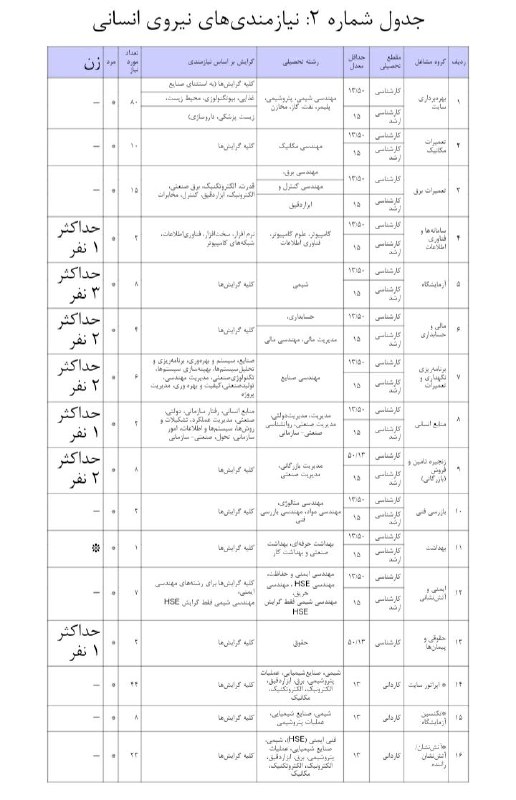 جدول شماره ۲: نیازمندی‌های نیروی انسانی
ردیف گروه مشاغل مقطع تحصیلی حداقل معدل رشته تحصیلی گرایش بر اساس نیازمندی تعداد مورد نیاز مرد زن
۱ بهره‌برداری سایت کارشناسی ۱۳/۵۰ کارشناسی ارشد ۱۵ مهندسی شیمی، پتروشیمی، پلیمر، نفت، گاز، مخازن کلیه گرایش‌ها (به استثنای صنایع غذایی، بیوتکنولوژی، محیط زیست، زیست پزشکی، داروسازی) ۸۰ * —
۲ تعمیرات مکانیک کارشناسی ۱۳/۵۰ کارشناسی ارشد ۱۵ مهندسی مکانیک کلیه گرایش‌ها ۱۰ * —
۳ تعمیرات برق کارشناسی ۱۳/۵۰ کارشناسی ارشد ۱۵ مهندسی برق، مهندسی کنترل و ابزاردقیق قدرت، الکتروتکنیک، برق صنعتی، الکترونیک، ابزاردقیق، کنترل، مخابرات ۱۵ * —
۴ سامانه‌ها و فناوری اطلاعات کارشناسی ۱۳/۵۰ کارشناسی ارشد ۱۵ کامپیوتر، علوم کامپیوتر، فناوری اطلاعات نرم‌افزار، سخت‌افزار، فناوری‌اطلاعات، شبکه‌های کامپیوتر * حداکثر ۱ نفر
۵ آزمایشگاه کارشناسی ۱۳/۵۰ کارشناسی ارشد ۱۵ شیمی کلیه گرایش‌ها ۸ * حداکثر ۳ نفر
۶ مالی و حسابداری کارشناسی ۱۳/۵۰ کارشناسی ارشد ۱۵ حسابداری، مدیریت مالی، مهندسی مالی کلیه گرایش‌ها ۴ * حداکثر ۲ نفر
۷ برنامه‌ریزی نگهداری و تعمیرات کارشناسی ۱۳/۵۰ کارشناسی ارشد ۱۵ مهندسی صنایع صنایع، سیستم و بهره‌وری، برنامه‌ریزی و تحلیل‌سیستم‌ها، بهینه‌سازی سیستم‌ها، تکنولوژی‌صنعتی، مدیریت مهندسی، تولیدصنعتی، کیفیت و بهره وری، مدیریت پروژه ۶ * حداکثر ۲ نفر
۸ منابع انسانی کارشناسی ۱۳/۵۰ کارشناسی ارشد ۱۵ مدیریت، مدیریت‌دولتی، مدیریت صنعتی، روانشناسی صنعتی- سازمانی منابع انسانی، رفتار سازمانی، دولتی، صنعتی، مدیریت عملکرد، تشکیلات و روش‌ها، سیستم‌ها و اطلاعات، امور سازمانی، تحول، صنعتی- سازمانی * حداکثر ۱ نفر
۹ زنجیره تامین و فروش (بازرگانی) کارشناسی ۵۰/۱۳ کارشناسی ارشد ۱۵ مدیریت بازرگانی، مدیریت صنعتی کلیه گرایش‌ها ۸ * حداکثر ۲ نفر
۱۰ بازرسی فنی کارشناسی ۱۳/۵۰ کارشناسی ارشد ۱۵ مهندسی متالوژی، مهندسی مواد، مهندسی بازرسی فنی کلیه گرایش‌ها * —
۱۱ بهداشت کارشناسی ۱۳/۵۰ کارشناسی ارشد ۱۵ بهداشت حرفه‌ای، بهداشت صنعتی و بهداشت کار کلیه گرایش‌ها ۱ * *
۱۲ ایمنی و آتش‌نشانی کارشناسی ۱۳/۵۰ کارشناسی ارشد ۱۵ مهندسی ایمنی و حفاظت، مهندسی HSE ، مهندسی حریق، مهندسی شیمی فقط گرایش HSE کلیه گرایش‌ها برای رشته‌های مهندسی ایمنی، مهندسی شیمی فقط گرایش HSE ۷ * —
۱۳ حقوقی و پیمان‌ها کارشناسی ۵۰/۱۳ حقوق کلیه گرایش‌ها * حداکثر ۱ نفر
۱۴ * اپراتور سایت کاردانی ۱۳ شیمی، صنایع‌شیمیایی، عملیات پتروشیمی، برق، ابزاردقیق، الکترونیک، الکتروتکنیک، مکانیک کلیه گرایش‌ها ۴۴ * —
۱۵ *تکنسین آزمایشگاه کاردانی ۱۳ شیمی، صنایع شیمیایی، عملیات پتروشیمی کلیه گرایش‌ها ۸ * —
۱۶ *آتش‌نشان/ آتش‌نشان راننده کاردانی ۱۳ فنی ایمنی (HSE)، شیمی، صنایع شیمیایی، عملیات پتروشیمی، برق، ابزاردقیق، الکترونیک، الکتروتکنیک، مکانیک کلیه گرایش‌ها ۲۳ * —